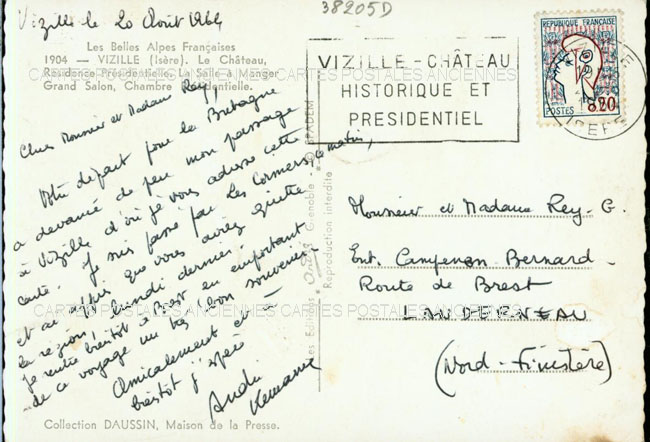 Vizille le 20 Août 1964
38205D
Les Belles Alpes Françaises
1904 — VIZILLE (Isère). Le Château,
Résidence Présidentielle. La Salle à Manger
Grand Salon, Chambre Présidentielle.
CARTES POSTALES ANCIENNES CARTES POSTALES ANCIENNES
Chers Monsieur et Madame Rey,
Votre départ pour la Bretagne
a devancé de peu mon passage
à Vizille d'où je vous adresse cette
carte. Je suis passé par les Cormers, ce matin,
et ai appris que vous aviez quitté
la région, lundi dernier.
Je rentre bientôt à Brest en emportant
de ce voyage un très bon souvenir.
Amicalement et à
bientôt j'espère
André
VIZILLE - CHÂTEAU
HISTORIQUE ET
PRESIDENTIEL
REPUBLIQUE FRANÇAISE
POSTES
0,20
VIZILLE
ISERE
Les Editions Grenoble - SPADEM
Reproduction interdite
Monsieur et Madame Rey. G.
Ent. Campenon Bernard
Route de Brest
LANDERNEAU
(Nord-Finistère)
CARTES POSTALES ANCIENNES CARTES POSTALES ANCIENNES
Collection DAUSSIN, Maison de la Presse.